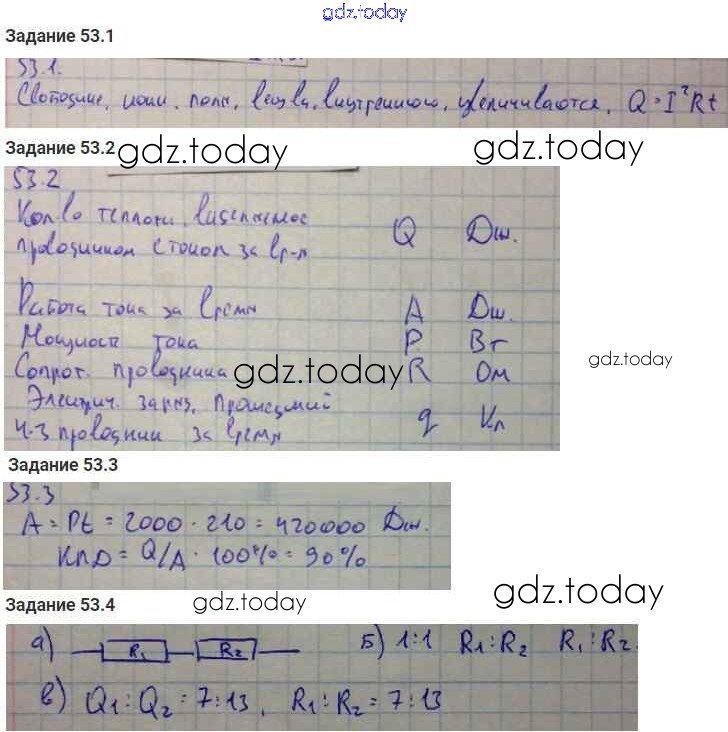 gdz.today
Задание 53.1
53.1.
Свободные, ионы, поля, вещества, внутреннюю, увеличиваются, Q = I²Rt
Задание 53.2
gdz.today
gdz.today
53.2
Кол-во теплоты,
проводником с током за вр-я Q Дж.
Работа тока за время A Дж.
Мощность тока P Вт
gdz.today
Сопрот. проводника R Ом
gdz.today
Электрич. заряд, прошедший
ч-з проводник за время q Кл
Задание 53.3
53.3
A = Pt = 2000 · 210 = 420000 Дж.
КПД = Q/A · 100% = 90%
gdz.today
Задание 53.4
gdz.today
а) R₁ R₂ Б) 1:1 R₁:R₂ R₁:R₂
в) Q₁:Q₂ = 7:13, R₁:R₂ = 7:13